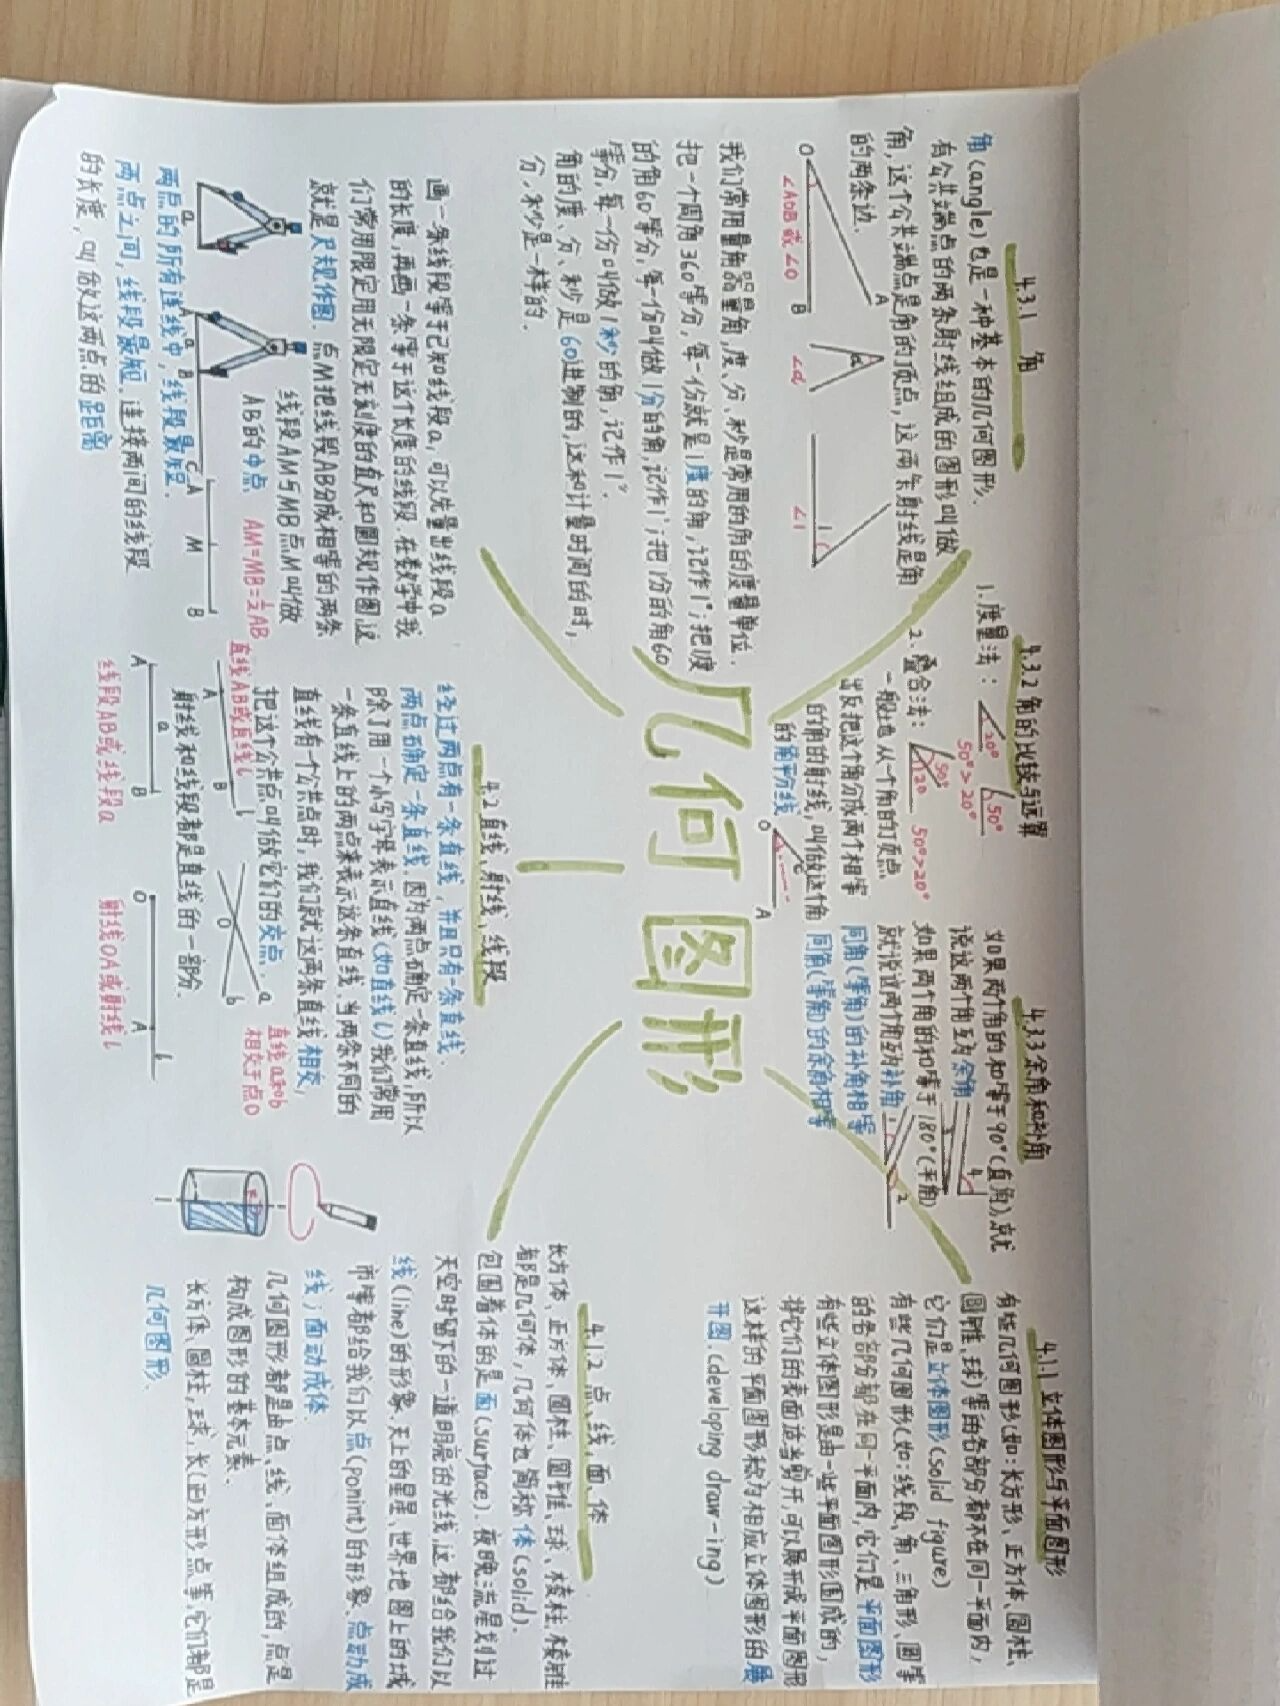 几何图形
4.3.1 角
角(angle)也是一种基本的几何图形.
有公共端点的两条射线组成的图形叫做
角,这个公共端点是角的顶点,这两条射线是角
的两条边.
O
A
B
∠AOB或∠O
α
∠α
1
∠1
我们常用量角器量角,度、分、秒是常用的角的度量单位.
把一个周角360等分,每一份就是1度的角,记作1°;把1度
的角60等分,每一份叫做1分的角,记作1′;把1分的角60
等分,每一份叫做1秒的角,记作1″.
角的度、分、秒是60进制的,这和计量时间的时,
分,秒是一样的.
4.3.2 角的比较与运算
1.度量法:
20°
50°
50°>20°
2.叠合法:
50°
20
50°>20°
一般地从一个角的顶点
出发把这个角分成两个相等
的角的射线,叫做这个角
的角平分线
O
C
A
4.3.3余角和补角
如果两个角的和等于90°(直角),就
说这两个角互为余角
3
4
如果两个角的和等于180°(平角)
就说这两个角互为补角
1
2
同角(等角)的补角相等
同角(等角)的余角相等
4.1.1 立体图形与平面图形
有些几何图形(如:长方形、正方体、圆柱、
圆锥、球)等的各部分都不在同一平面内,
它们是立体图形(solid figure)
有些几何图形(如:线段、角、三角形、圆等
的各部分都在同一平面内,它们是平面图形
有些立体图形是由一些平面图形围成的,
将它们的表面适当剪开,可以展开成平面图形
这样的平面图形称为相应立体图形的展
开图.(developing draw-ing)
画一条线段等于已知线段a,可以先量出线段a
的长度,再画一条等于这个长度的线段.在数学中我
们常用限定用无限定无刻度的直尺和圆规作图,这
就是尺规作图.点M把线段AB分成相等的两条
线段AM与MB点M叫做
AB的中点 AM=MB=½AB
a
A
a
B
C
A
M
B
两点的所有连线中,线段最短.
两点之间,线段最短.连接两间的线段
的长度,叫做这两点的距离
4.2 直线、射线、线段
经过两点有一条直线,并且只有一条直线.
两点确定一条直线.因为两点确定一条直线,所以
除了用一个小写字母表示直线(如直线l)我们常用
一条直线上的两点来表示这条直线.当两条不同的
直线有一个公共点时,我们就说这两条直线相交,
把这个公共点叫做它们的交点.
直线AB或直线l
A
B
l
O
a
b
直线a和b
相交于点O
射线和线段都是直线的一部分.
A
a
B
线段AB或线段a
O
A
l
射线OA或射线l
4.1.2 点、线、面、体
长方体、正方体、圆柱、圆锥、球、棱柱、棱锥
都是几何体,几何体也简称体(solid).
包围着体的是面(surface).夜晚流星划过
天空时留下的一道明亮的光线,这都给我们以
线(line)的形象.天上的星星、世界地图上的城
市等都给我们以点(ponint)的形象、点动成
线;面动成体.
几何图形都是由点、线、面体组成的,点是
构成图形的基本元素.
长方体、圆柱,球,长(正)方形点等,它们都是
几何图形.